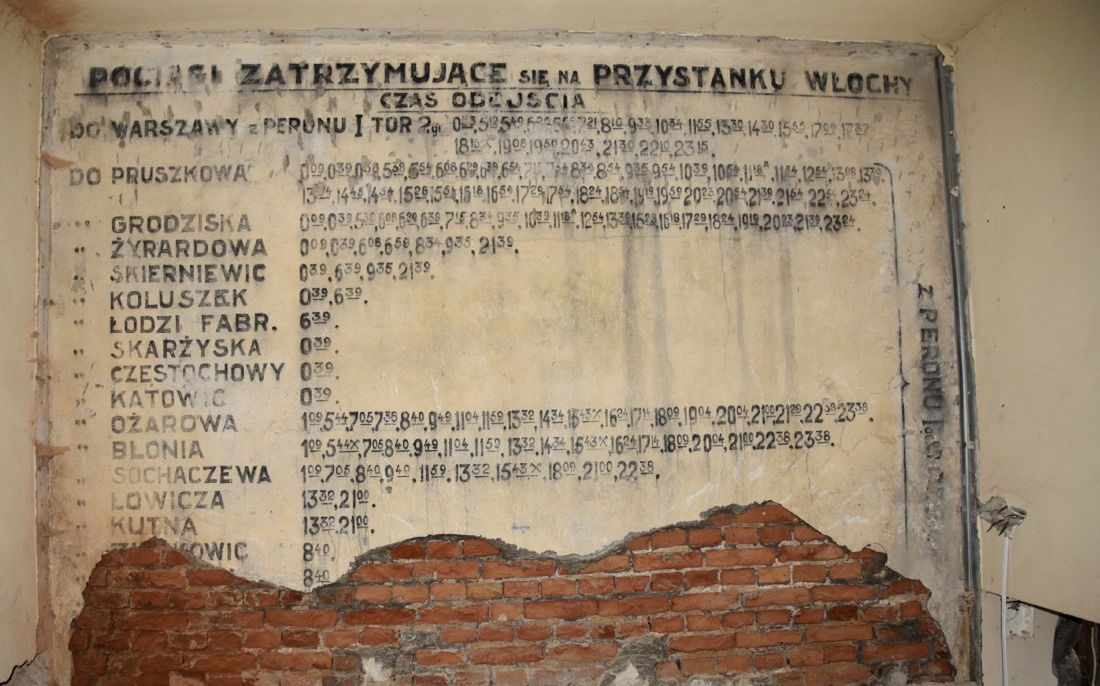 POCIĄGI ZATRZYMUJĄCE SIĘ NA PRZYSTANKU WŁOCHY
CZAS ODEJŚCIA
DO WARSZAWY z PERONU I TOR 2gi 5.49 7.21 8.10 9.33 10.34 11.55 13.30 14.30 15.55 17.00 17.37
19.08, 19.50, 20.43, 21.30, 22.10, 23.15.
DO PRUSZKOWA 0.09, 0.39 8.34, 8.54, 9.35, 9.54, 10.39, 10.54, 11.54, 12.54, 13.09, 13.39
13.54, 14.45, 14.54, 15.28, 15.54, 16.18, 16.54, 17.29, 17.54, 18.24, 18.54, 19.19, 19.59, 20.23, 20.54, 21.39, 21.54, 22.54, 23.24.
" GRODZISKA 0.09, 0.39, 5.36, 6.08, 6.20, 6.39, 7.15, 8.34, 9.35, 10.39, 12.54, 13.39, 15.28, 16.18, 17.29, 18.24, 19.19, 20.23, 21.39, 23.24.
" ŻYRARDOWA 0.09, 0.39, 6.08, 6.58, 8.34, 9.35, 21.39.
" SKIERNIEWIC 0.39, 6.39, 9.35, 21.39.
" KOLUSZEK 0.39, 6.39.
" ŁODZI FABR. 6.39.
" SKARŻYSKA 0.39.
" CZĘSTOCHOWY 0.39.
" KATOWIC 0.39
" OŻAROWA 1.09, 5.44, 7.05, 7.38, 8.40, 9.49, 11.04, 11.59, 13.32, 14.34, 15.43×, 16.24, 17.14, 18.09, 19.04, 20.04, 21.00, 21.29, 22.38, 23.38.
" BŁONIA 1.09, 5.44×, 7.05, 8.40, 9.49, 11.04, 11.50, 13.32, 14.34, 15.43×, 16.24, 17.14, 18.09, 20.04, 21.00, 22.38, 23.38.
" SOCHACZEWA 1.09, 7.05, 8.40, 9.40, 11.59, 13.32, 15.43×, 18.09, 21.00, 22.38.
" ŁOWICZA 13.32, 21.00.
" KUTNA 13.32, 21.00.
8.40.
8.40
Z PERONU I